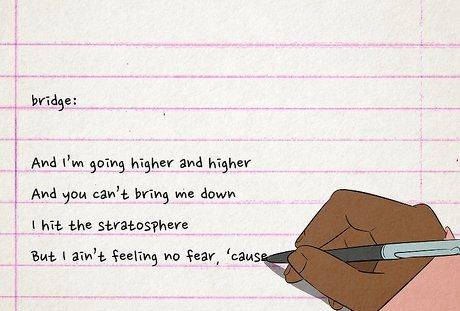 bridge:
And I'm going higher and higher
And you can't bring me down
I hit the stratosphere
But I ain't feeling no fear, 'cause